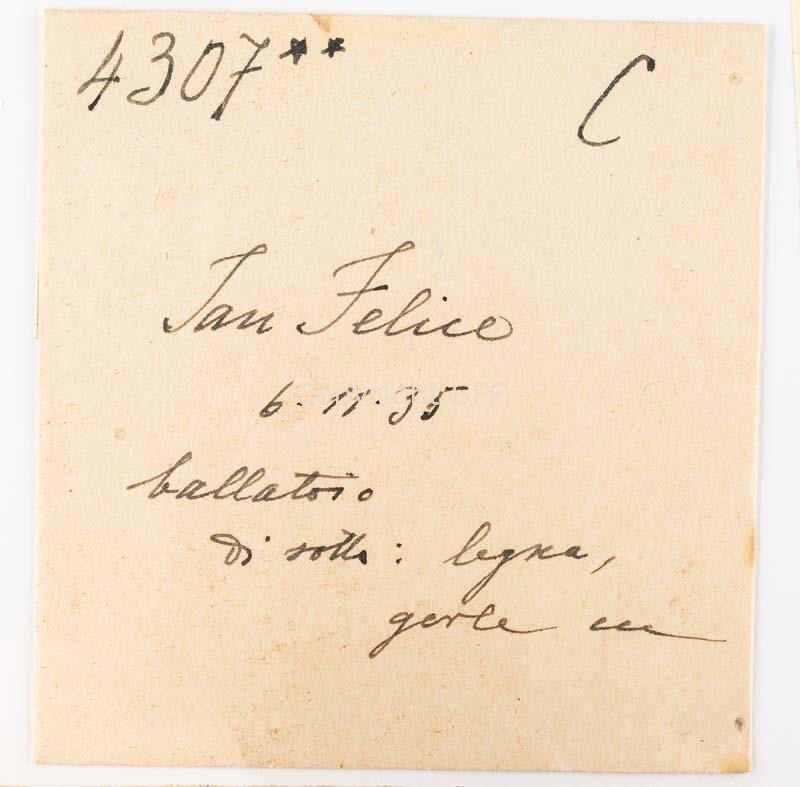 4307** C
San Felice
6·11·35
ballatoio
di sotto: legna,
gerle ecc